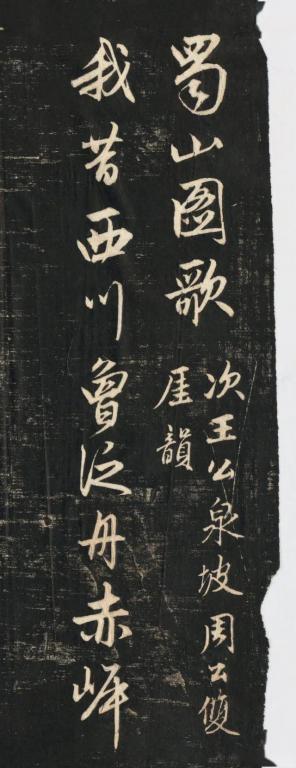 蜀山圖歌
次王公泉坡周公雙
厓韻
我昔西川曾泛舟赤岬